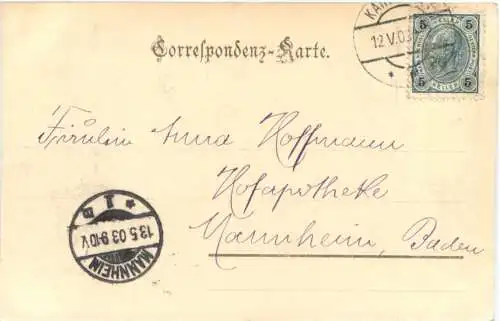 Correspondenz-Karte.
12.V.03
5 5
HELLER
5 5
Fräulein Anna Hoffmann
Hofapotheke
Mannheim, Baden
MANNHEIM
13.5.03.9-10V.